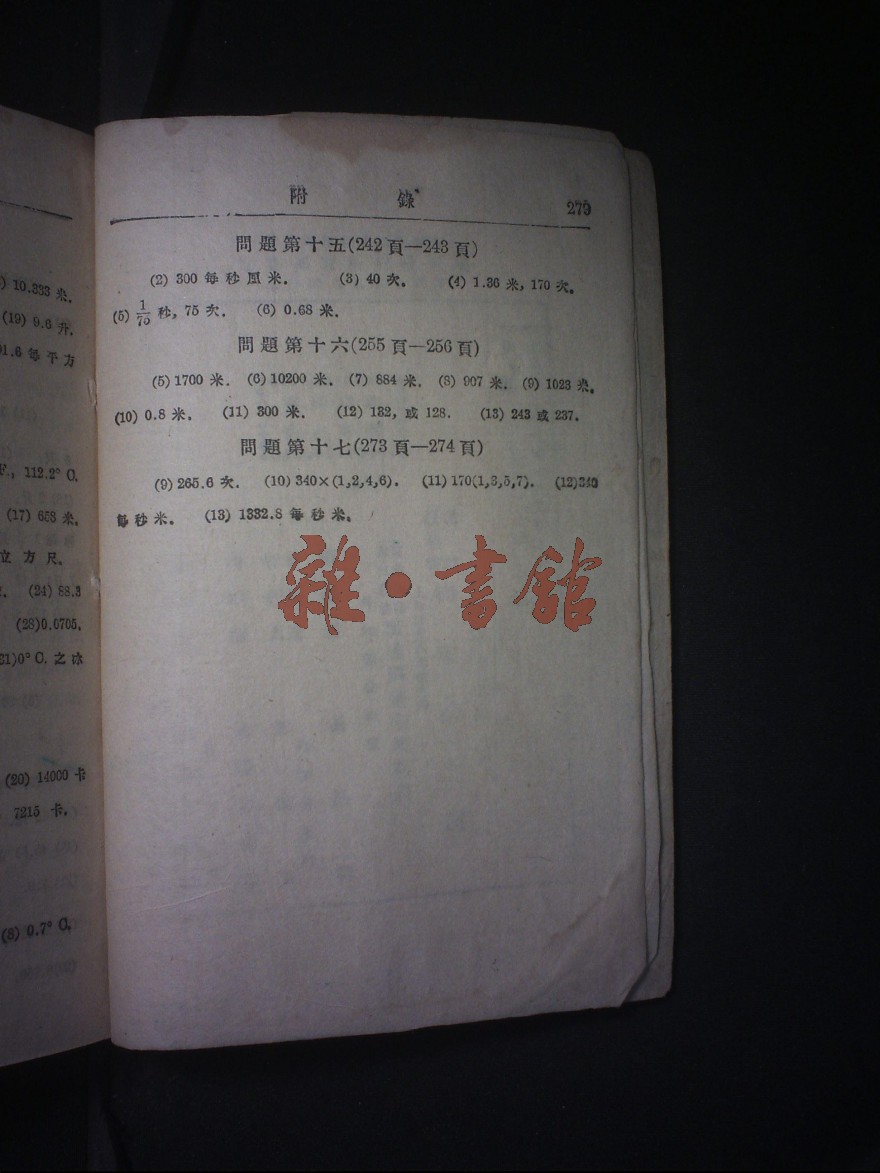 10.333 米.
(19) 9.6 升.
1.6 每平方
F., 112.2° C.
(17) 658 米.
立方尺.
(24) 88.3
(28)0.0705.
31)0° C. 之冰
(20) 14000 卡
7215 卡.
(8) 0.7° C.
附 錄 279
問題第十五(242 頁—243 頁)
(2) 300 每秒厘米. (3) 40 次. (4) 1.36 米, 170 次.
(5) 1/75 秒, 75 次. (6) 0.68 米.
問題第十六(255 頁—256 頁)
(5) 1700 米. (6) 10200 米. (7) 884 米. (8) 907 米. (9) 1023 米.
(10) 0.8 米. (11) 300 米. (12) 132, 或 128. (13) 243 或 237.
問題第十七(273 頁—274 頁)
(9) 265.6 次. (10) 340×(1,2,4,6). (11) 170(1,3,5,7). (12)340
每秒米. (13) 1332.8 每秒米.
雜·書館